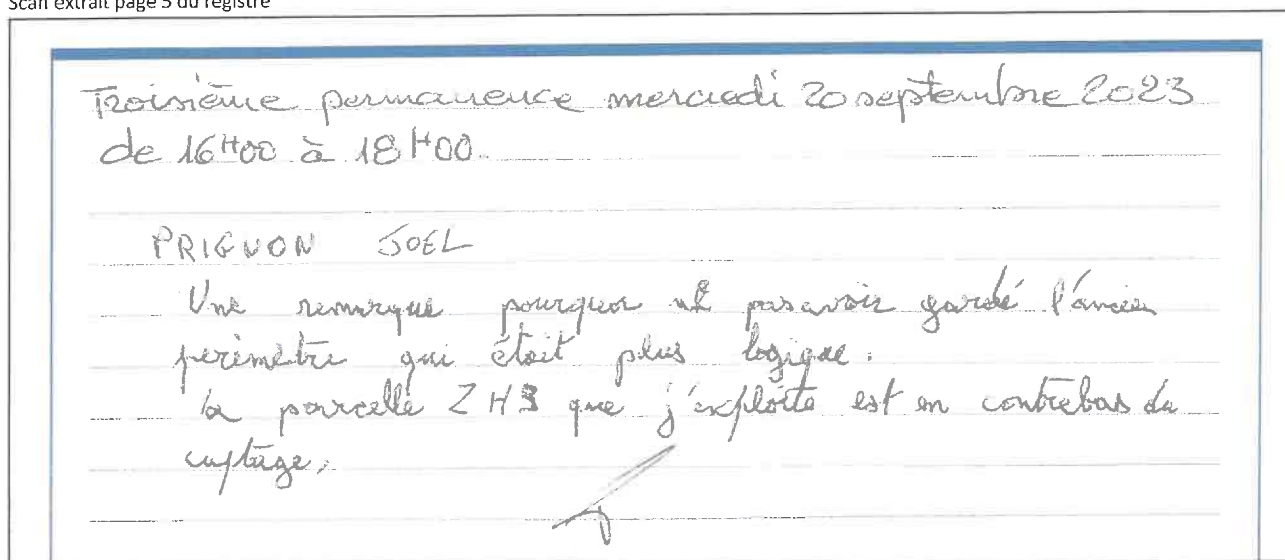 Scan extrait page 5 du registre
Troisième permanence mercredi 20 septembre 2023
de 16H00 à 18H00.
PRIGNON JOEL
Une remarque pourquoi ne pas avoir gardé l'ancien
périmètre qui était plus logique.
la parcelle ZH3 que j'exploite est en contrebas du
captage.